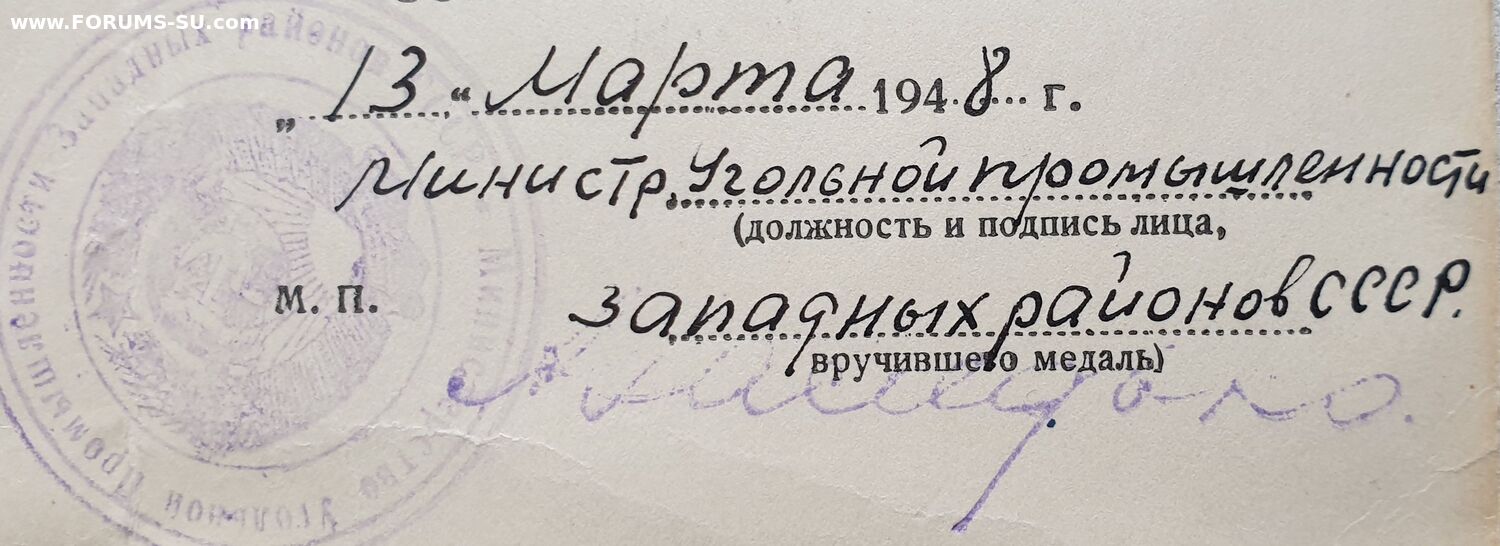 www.FORUMS-SU.com
„13“ Марта 1948 г.
Министр Угольной промышленности
(должность и подпись лица,
М. П.
Западных районов СССР.
вручившего медаль)
Министерство Угольной Промышленности Западных районов СССР